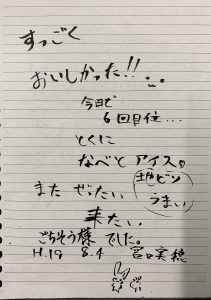 すっごく
おいしかった!!
今日で
6回目位....
とくに
なべとアイス。
また ぜったい
地ビン
うまい
来たい
ごちそう様 でした。
H.19 8.4 宮口実穂